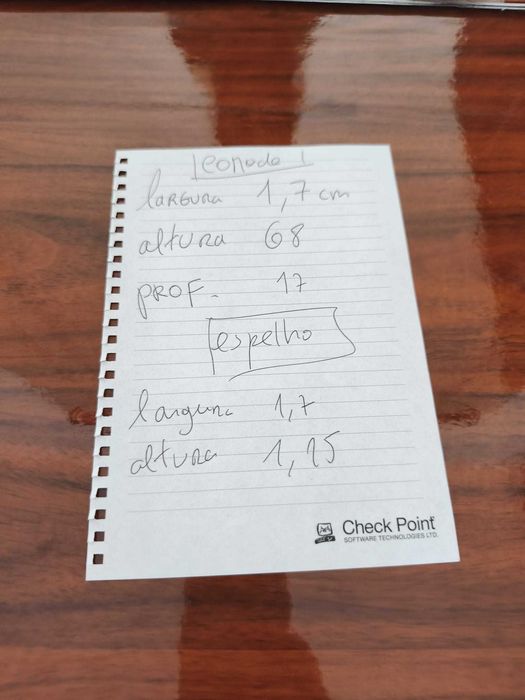 largura 1,7 cm
altura 68
PROF. 17
espelho
largura 1,7
altura 1,15
Check Point
SOFTWARE TECHNOLOGIES LTD.